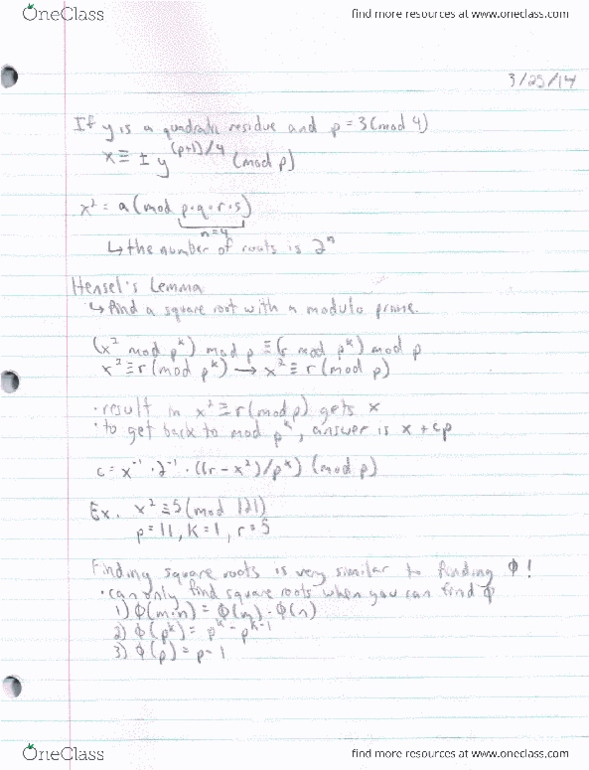 OneClass
find more resources at www.oneclass.com
3/25/14
If y is a quadratic residue and p = 3 (mod 4)
x ≡ ± y^(p+1)/4 (mod p)
x² = a (mod p·q·r·s)
n=4
↳ the number of roots is 2ⁿ
Hensel's Lemma
↳ find a square root with a modulo prime.
(x² mod pᵏ) mod p ≡ (r mod pᵏ) mod p
x² ≡ r (mod pᵏ) → x² ≡ r (mod p)
· result in x² ≡ r (mod p) gets x
· to get back to mod pᵏ, answer is x + cp
c = x⁻¹ · 2⁻¹ · ((r - x²)/pᵏ) (mod p)
Ex. x² ≡ 5 (mod 121)
p = 11, k = 1, r = 5
Finding square roots is very similar to finding ϕ!
· can only find square roots when you can find ϕ
1) ϕ(m·n) = ϕ(m) · ϕ(n)
2) ϕ(pᵏ) = pᵏ - pᵏ⁻¹
3) ϕ(p) = p - 1
OneClass
find more resources at www.oneclass.com